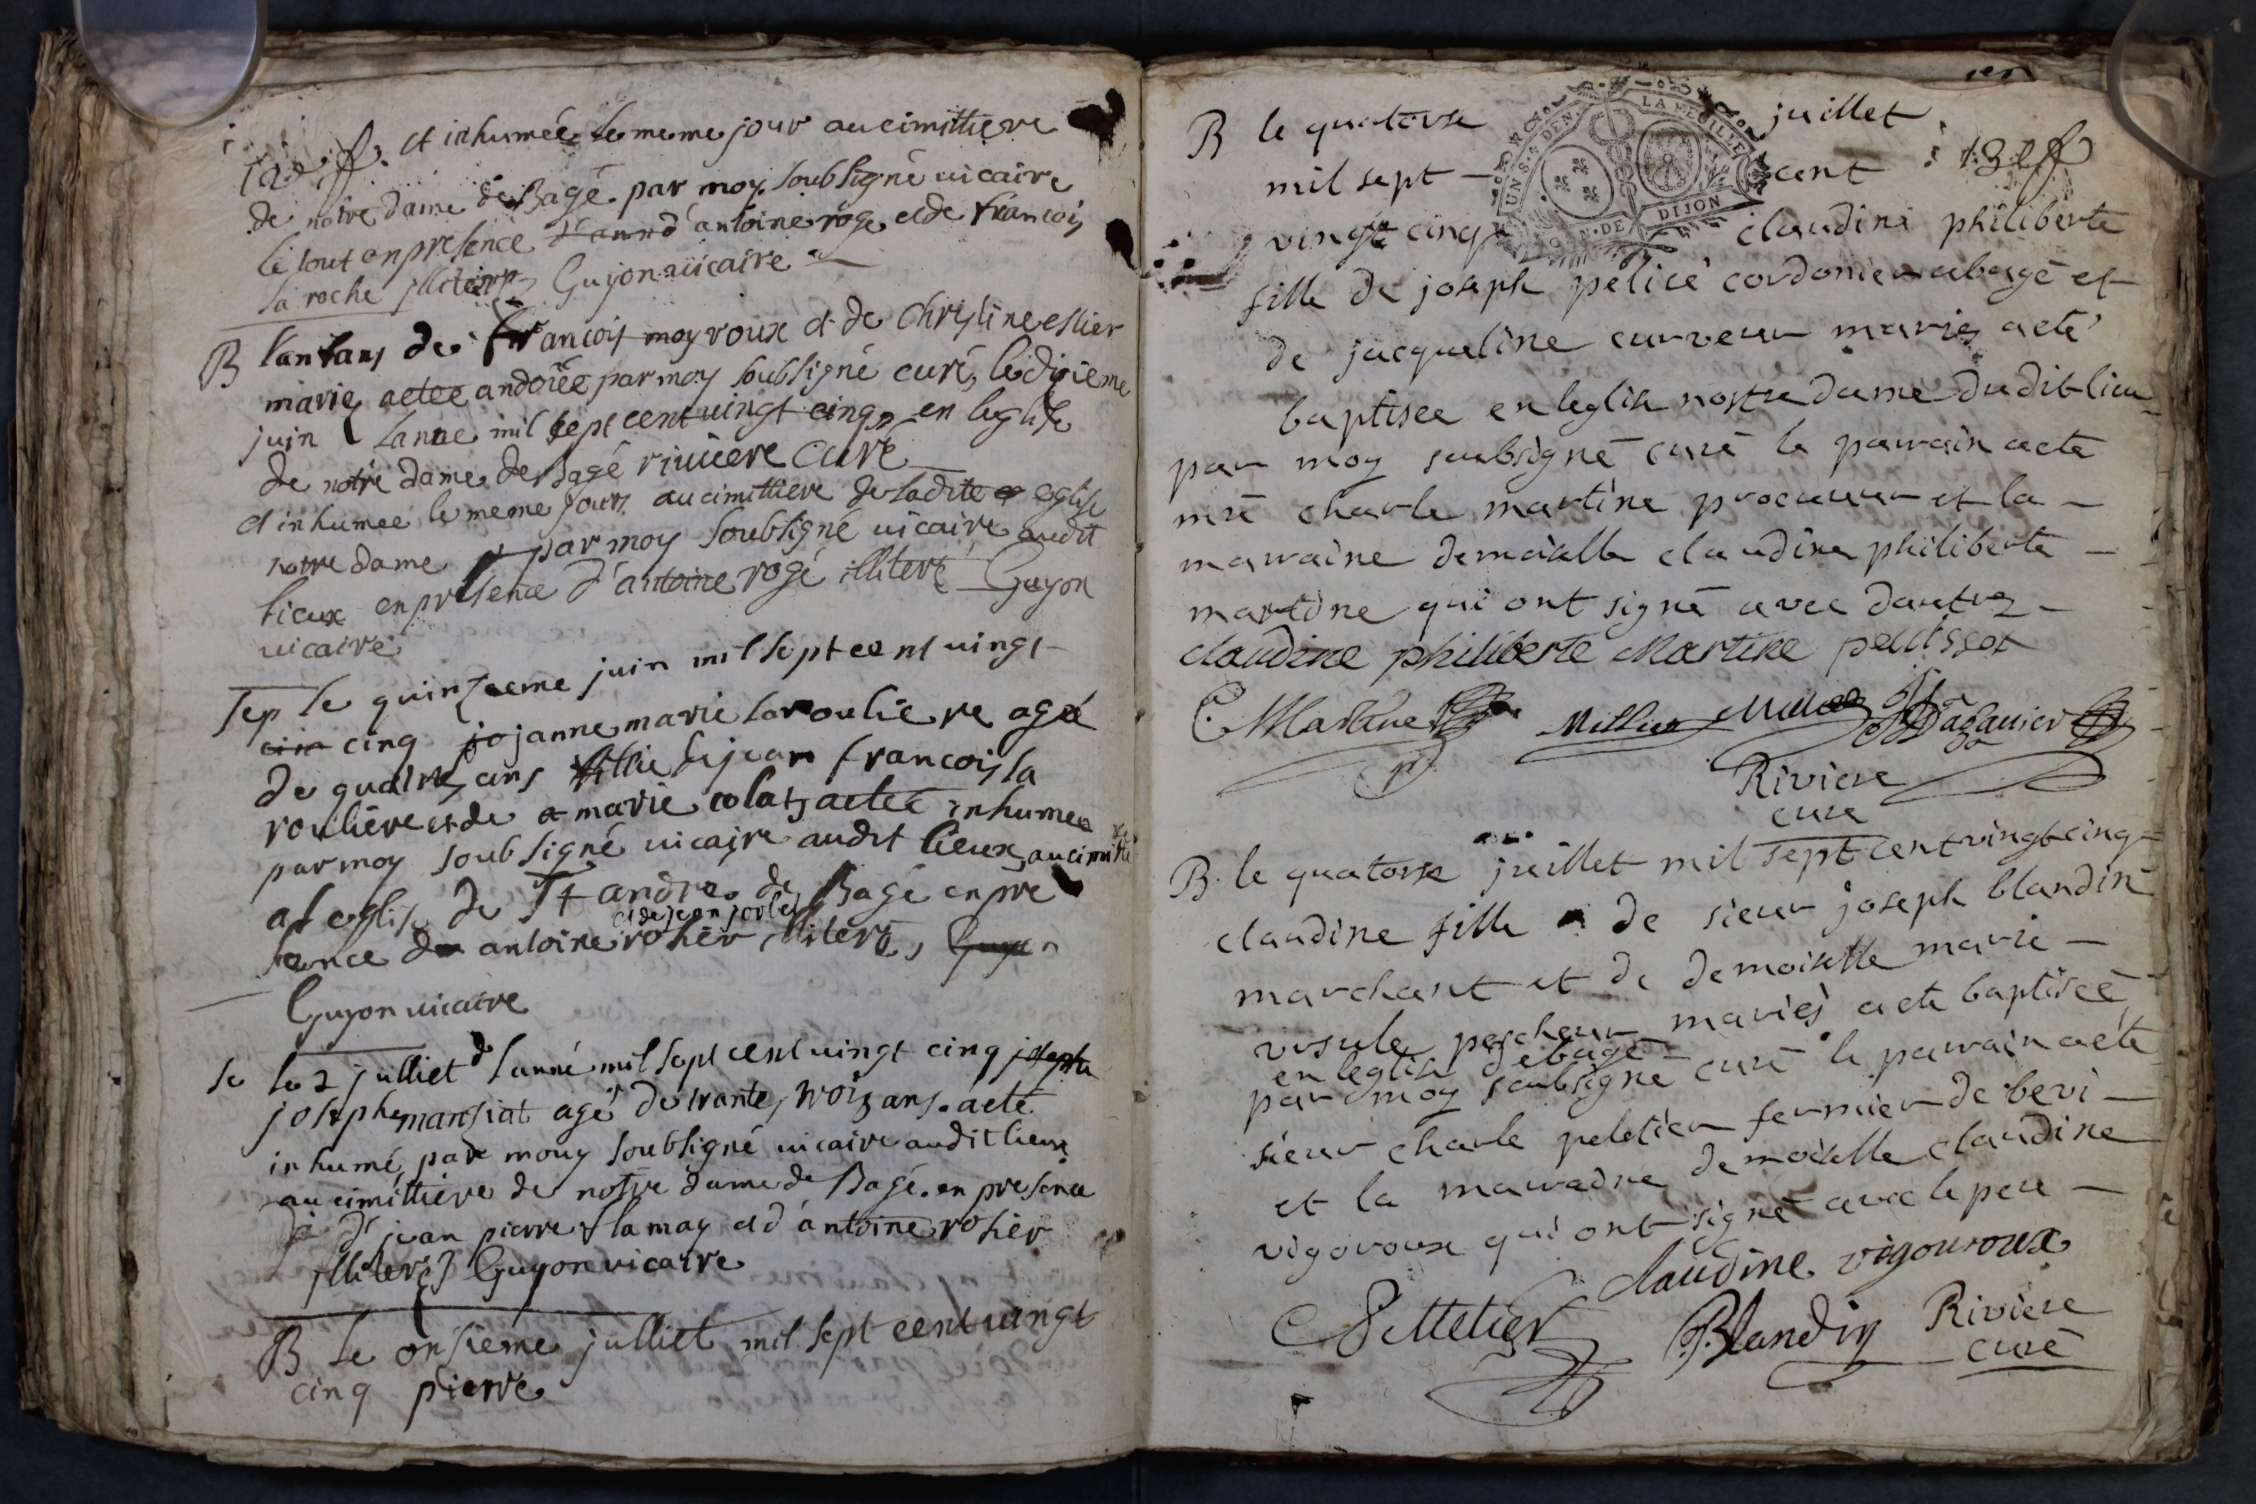 et inhumée le meme jour au cimittiere
de notre dame de Bagé par moy soubsigné uicaire
le tout en presence d'antoine roge et de francois
la roche Guyon uicaire
B l'anfans de francois moyroux et de Christine estier
maries actee andoiée par moy soubsigné curé, le dixieme
juin lanne mil sept cent uingt cinq en leglise
de notre dame de Bagé riuiere Curé
et inhumee le meme jour au cimittiere de ladite eglise
notre dame par moy soubsigné uicaire audit
lieux en presence d'antoine rogé illiteré Guyon
uicaire
sep le quinzeeme juin mil sept cent uingt
cinq janne marie laroutiere agé
de quattre ans fillie de jean francois la
routiere et de marie colas actée inhumee
par moy soubsigné uicaire audit lieux au cimitie
a leglise de St andre de Bagé en pre
et de jean
sence de antoine rosier illiteré, Guyon
Guyon uicaire
se le 2 julliet d lanné mil sept cent uingt cinq joseph
joseph mansiat agé de trante trois ans acté
inhumé par mouy soubsigné uicaire audit lieux
au cimittiere de notre dame de Bagé en presence
d' jean pierre lamay et d'antoine rosier
illiterés Guyon uicaire
B le onsieme julliet mil sept cent uingt
cinq pierre
B le quatorse juillet
mil sept - cent
vingt cinq claudine philiberte
fille de joseph pelicé cordonier a bagé et
de jacqueline curveur mariés acté
baptisee en leglise nostre dame dudit lieu
par moy soubsigné curé le parrain acté
mre charle martine procureur et la -
marraine demoiselle claudine philiberte -
martine qui ont signé avec dautres -
claudine philiberte Martine pelissox
C. Martine Millien
Riviere
curé
B. le quatorse juillet mil sept cent vingt cinq
claudine fille de sieur joseph blandin
marchant et de demoiselle marie -
ursule pescheur mariés acte baptiseé
en leglise de bagé
par moy soubsigné curé le parrain acté
sieur charle peletier fermier de bevi -
et la marraine demoiselle claudine
vigoroux qui ont signé avec le pere -
claudine vigouroux
C Pelletier Blandin Riviere
curé
UNS A DEN
LA FEUILLE
GEN. DE DIJON